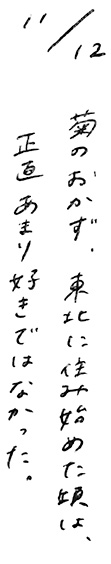 11/12
菊のおかず、東北に住み始めた頃は、
正直あまり好きではなかった。